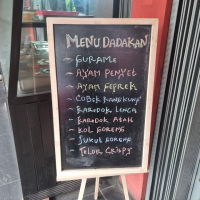 MENU DADAKAN
- GURAME
- AYAM PENYET
- AYAM GEPREK
- COBEK KANGKUNG
- KARODOK LENCA
- KARODOK ATAH
- KOL GORENG
- JUKUT GORENG
- TELOR CRISPY